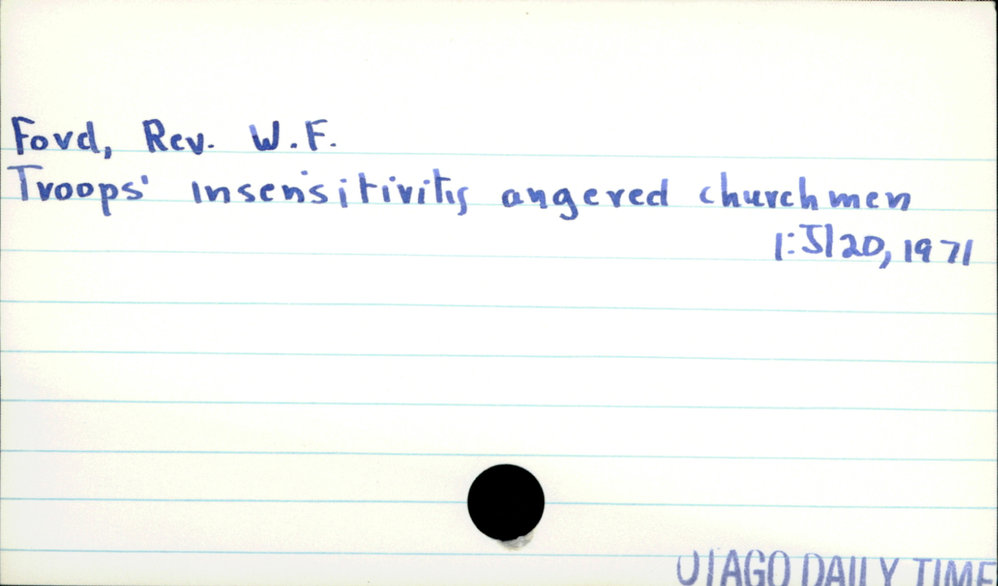 Ford, Rev. W.F.
Troops' insensitivity angered churchmen
1:Jl 20, 1971
OTAGO DAILY TIME